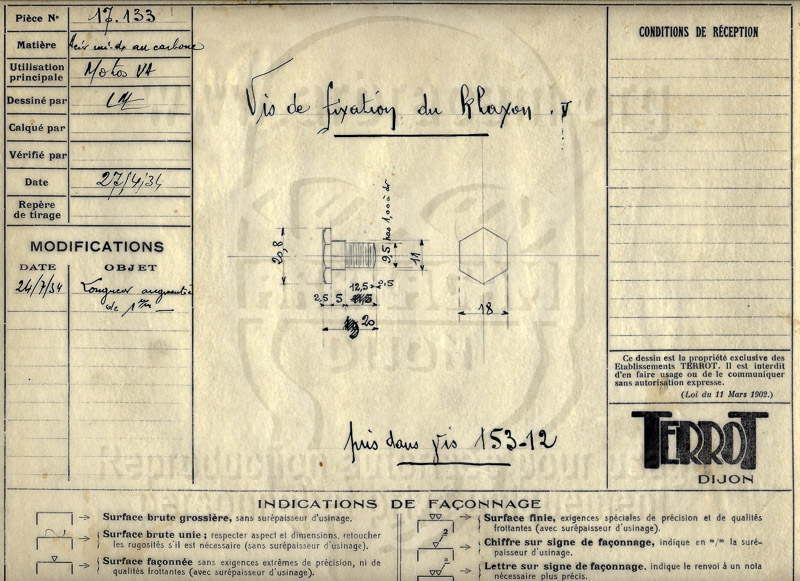 Pièce N° 17.133
Matière Acier mi-dx au carbone
Utilisation
principale Motos VA
Dessiné par
Calqué par
Vérifié par
Date 27/4/34
Repère
de tirage
MODIFICATIONS
DATE OBJET
24/7/34 Longueur augmentée
de 1mm
Vis de fixation du Klaxon. V
20,8
9,5 pas 1,00 à dr
11
12,5 2,5
2,5 5
20
18
pris dans vis 153-12
CONDITIONS DE RÉCEPTION
Ce dessin est la propriété exclusive des
Etablissements TERROT. Il est interdit
d'en faire usage ou de le communiquer
sans autorisation expresse.
(Loi du 11 Mars 1902.)
TERROT
DIJON
INDICATIONS DE FAÇONNAGE
Surface brute grossière, sans surépaisseur d'usinage.
Surface brute unie ; respecter aspect et dimensions, retoucher
les rugosités s'il est nécessaire (sans surépaisseur d'usinage).
Surface façonnée sans exigences extrêmes de précision, ni de
qualités frottantes (avec surépaisseur d'usinage).
Surface finie, exigences spéciales de précision et de qualités
frottantes (avec surépaisseur d'usinage).
Chiffre sur signe de façonnage, indique en m/m la suré-
paisseur d'usinage.
Lettre sur signe de façonnage, indique le renvoi à un nota
nécessaire plus précis.
DIJON